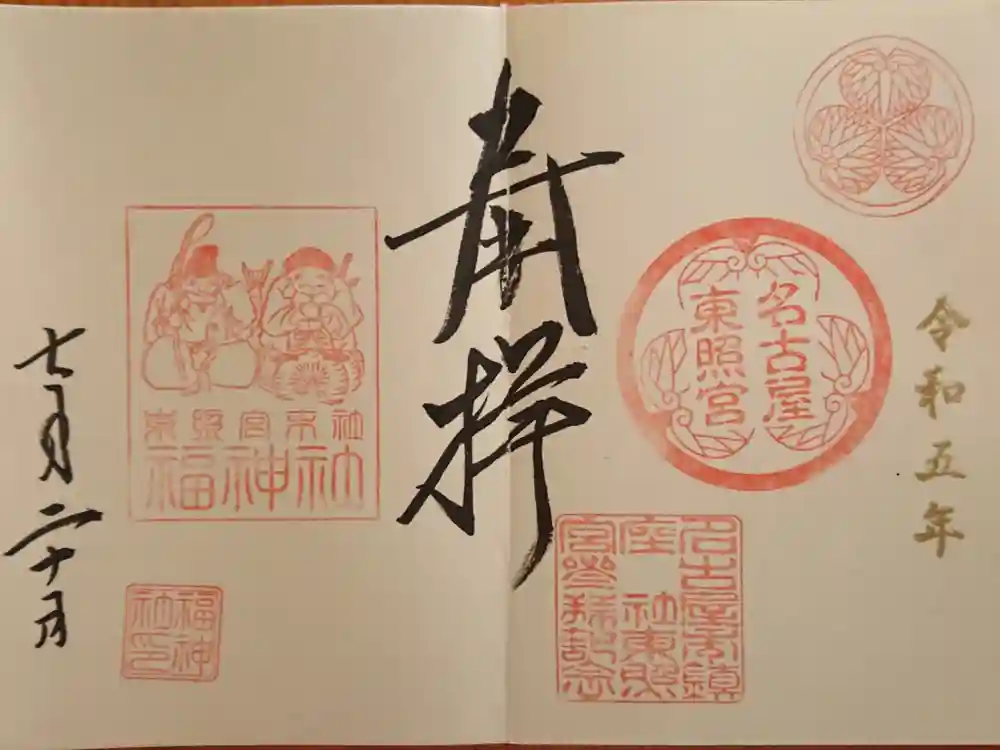 令和五年
名古屋
東照宮
名古屋市鎮
座社東照
宮参拝記念
奉拝
東照宮末社
福神社
福神
社印
七月二十日